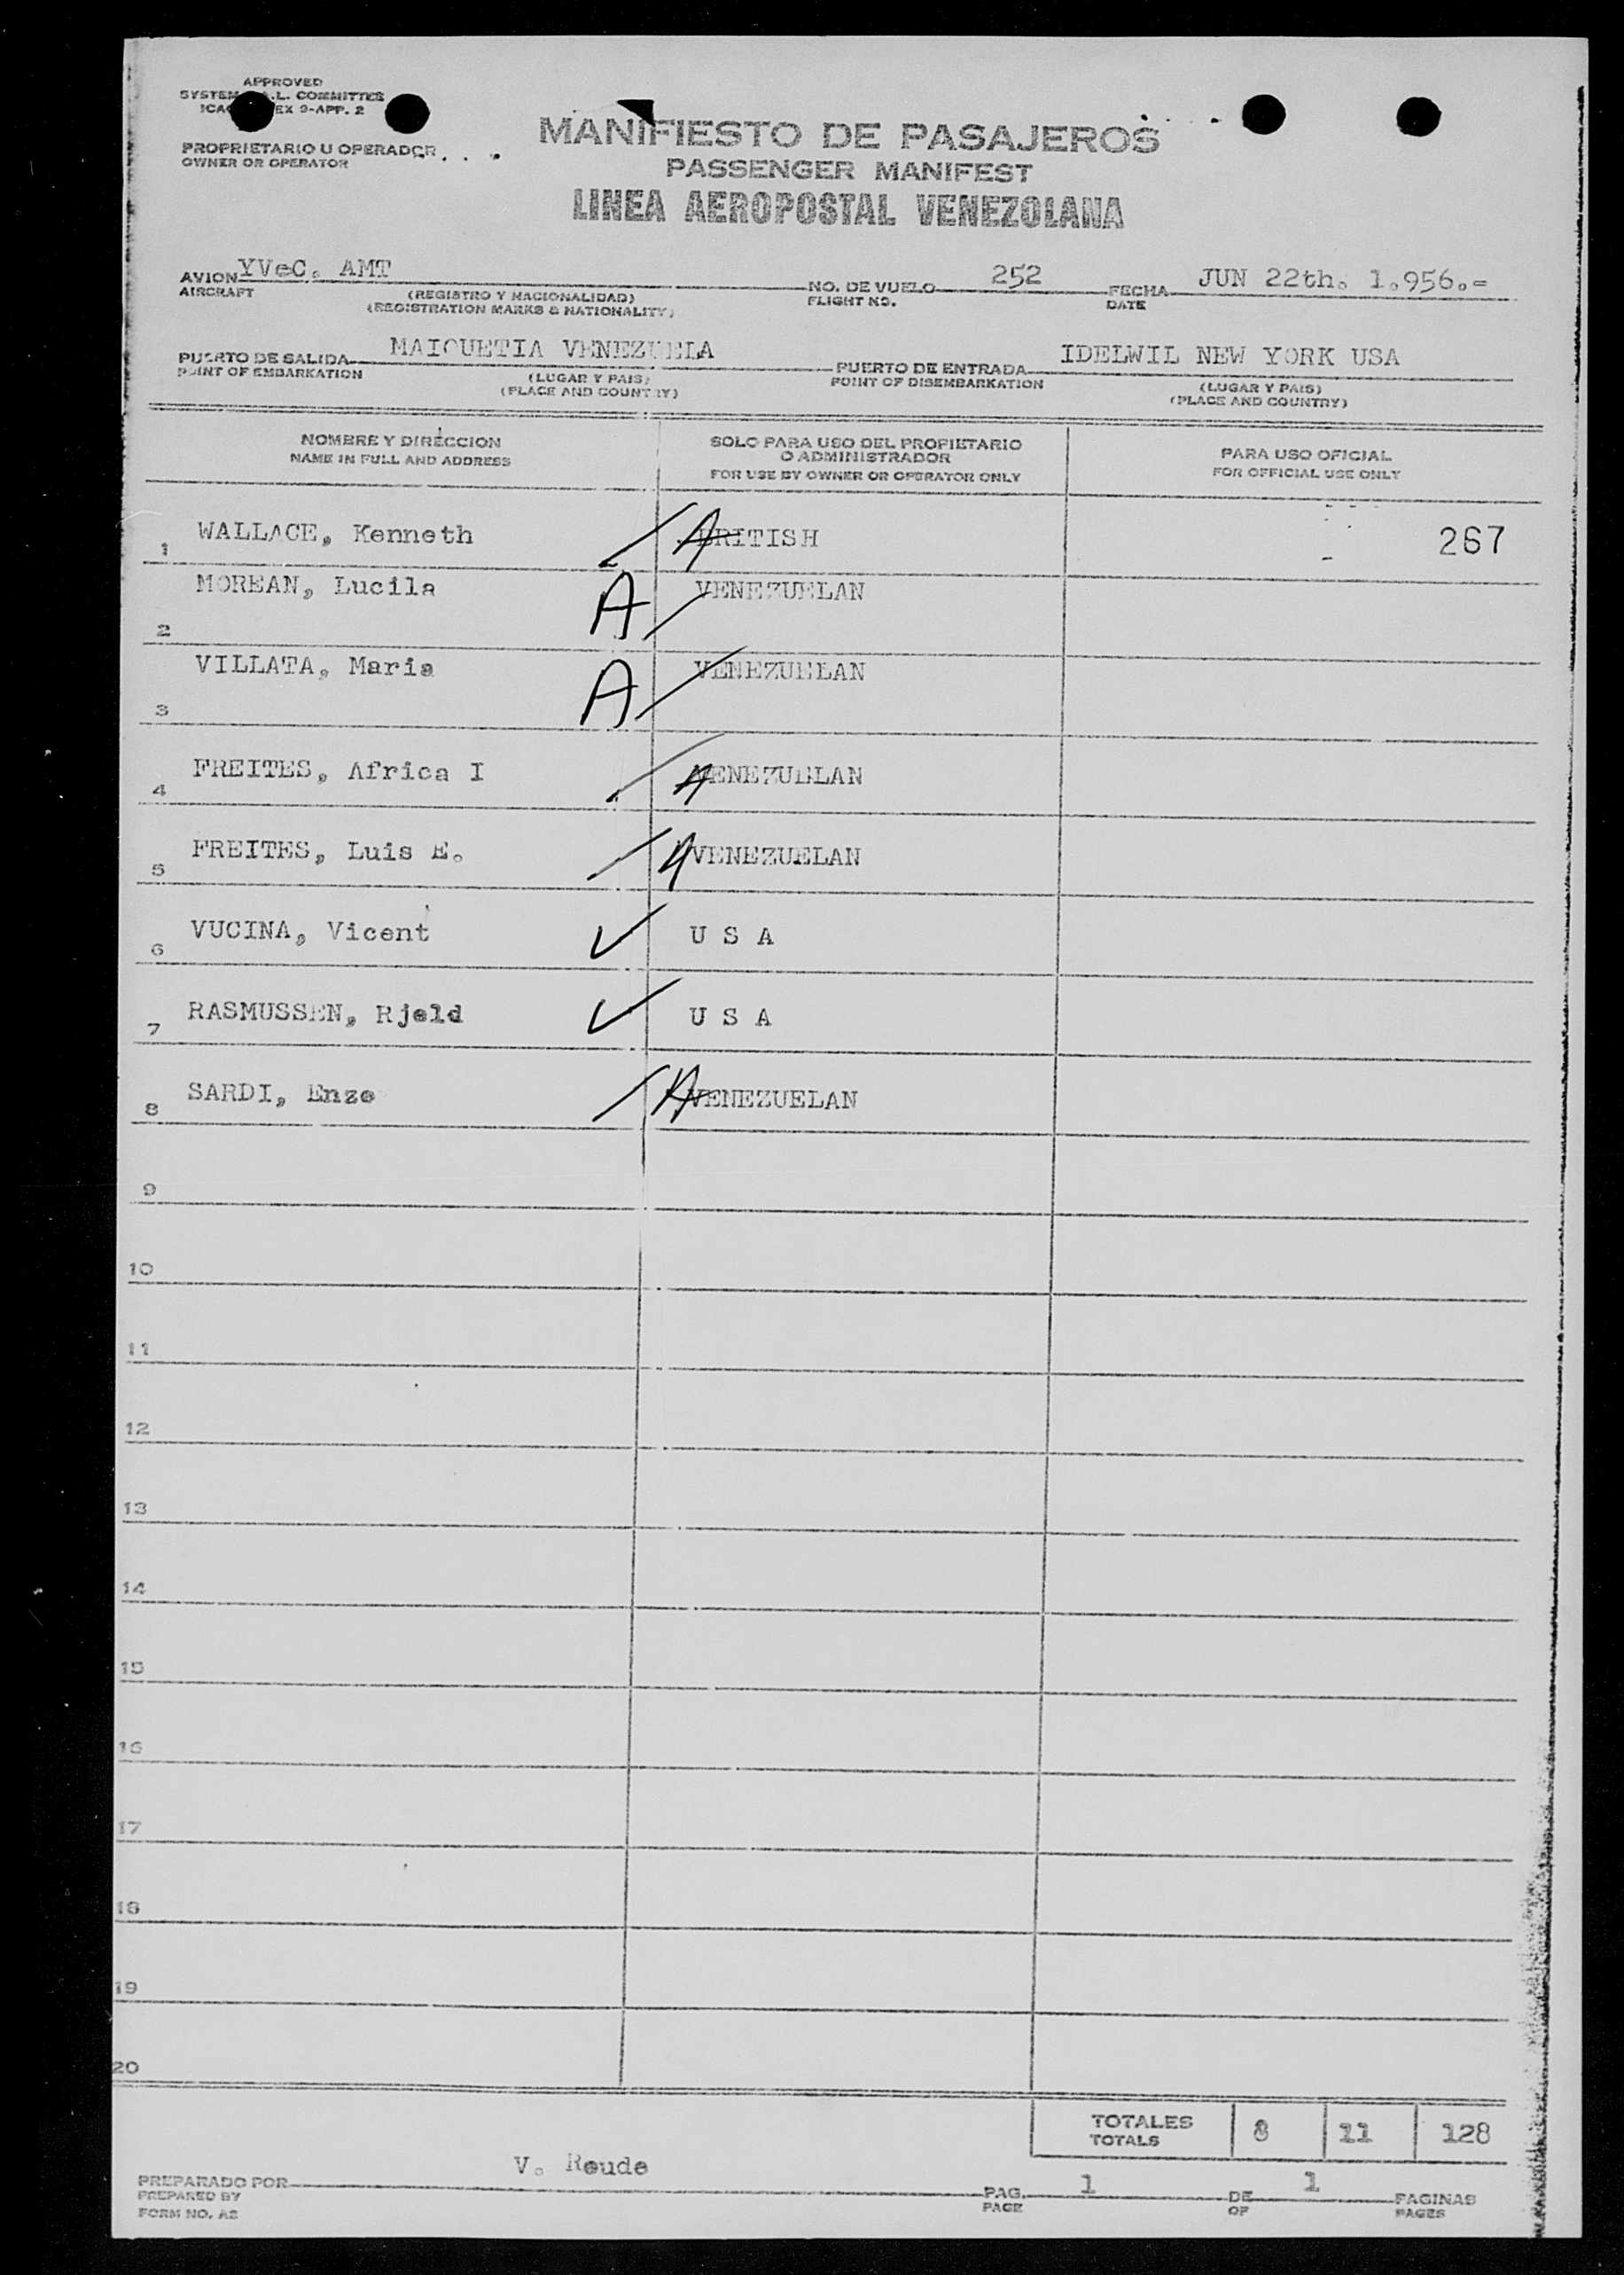 APPROVED
SYSTEM A.L. COMMITTEE
EX 9-APP. 2
PROPRIETARIO U OPERADOR
OWNER OR OPERATOR
MANIFIESTO DE PASAJEROS
PASSENGER MANIFEST
LINEA AEROPOSTAL VENEZOLANA
AVION YVeC. AMT NO. DE VUELO 252 FECHA JUN 22th. 1.956.=
AIRCRAFT (REGISTRO Y NACIONALIDAD) FLIGHT NO. DATE
(REGISTRATION MARKS & NATIONALITY)
PUERTO DE SALIDA MAIQUETIA VENEZUELA PUERTO DE ENTRADA IDELWIL NEW YORK USA
POINT OF EMBARKATION (LUGAR Y PAIS) POINT OF DISEMBARKATION (LUGAR Y PAIS)
(PLACE AND COUNTRY) (PLACE AND COUNTRY)
NOMBRE Y DIRECCION SOLO PARA USO DEL PROPIETARIO PARA USO OFICIAL
O ADMINISTRADOR
NAME IN FULL AND ADDRESS FOR USE BY OWNER OR OPERATOR ONLY FOR OFFICIAL USE ONLY
1 WALLACE, Kenneth A BRITISH 267
2 MOREAN, Lucila A VENEZUELAN
3 VILLATA, Maria A VENEZUELAN
4 FREITES, Africa I A VENEZUELAN
5 FREITES, Luis E. A VENEZUELAN
6 VUCINA, Vicent U S A
7 RASMUSSEN, Rjeld U S A
8 SARDI, Enzo A VENEZUELAN
9
10
11
12
13
14
15
16
17
18
19
20
TOTALES 8 11 128
TOTALS
V. Reude
PREPARADO POR PAG. 1 DE 1 PAGINAS
PREPARED BY PAGE OF PAGES
FORM NO. A2